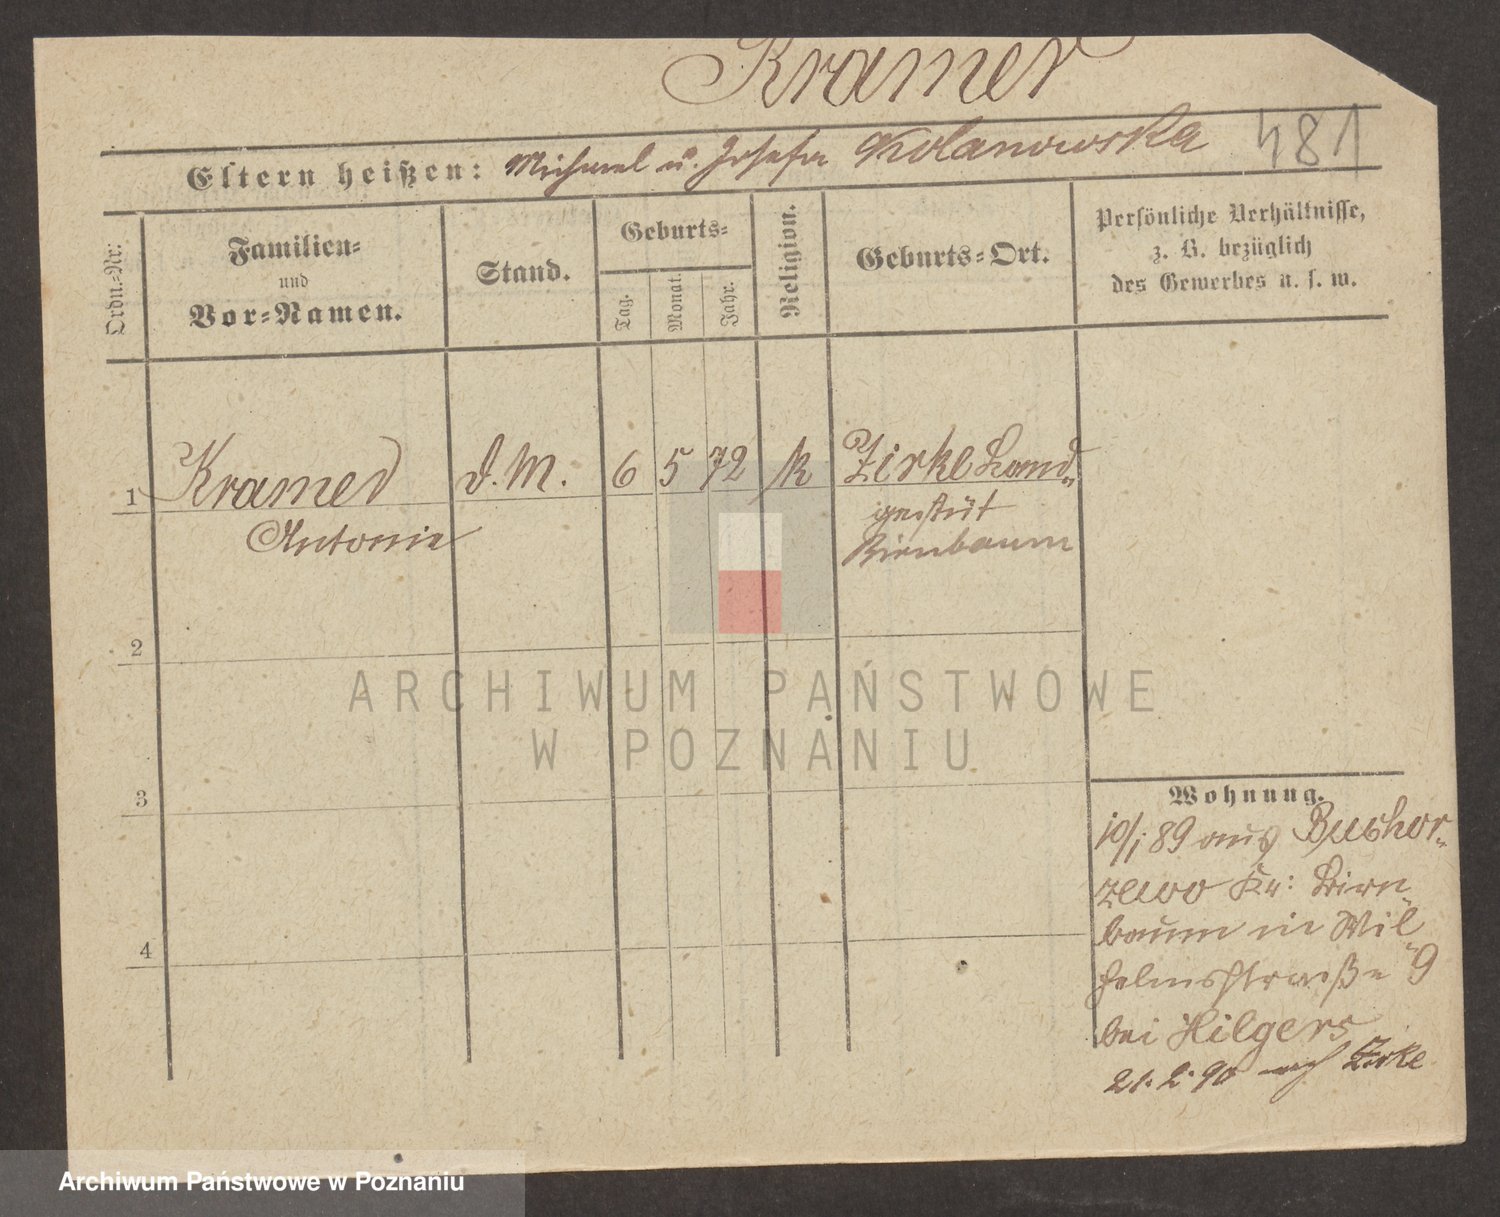 Kramer
Eltern heißen: Michael u. Josefa Kolanowska 481
Ordn.-Nr.
Familien-
und
Vor-Namen.
Stand.
Geburts-
Tag.
Monat.
Jahr.
Religion.
Geburts-Ort.
Persönliche Verhältnisse,
z. B. bezüglich
des Gewerbes u. s. w.
1 Kramer d. M. 6 5 72 k Zirke Land-
Antonie gestüt
Birnbaum
2
ARCHIWUM PAŃSTWOWE
W POZNANIU
3
Wohnung.
10/1 89 aus Buchor-
zewo Kr: Birn-
baum in Wil-
helmsstraße 9
bei Hilgers
4
21. 2. 90 nach Zirke
Archiwum Państwowe w Poznaniu